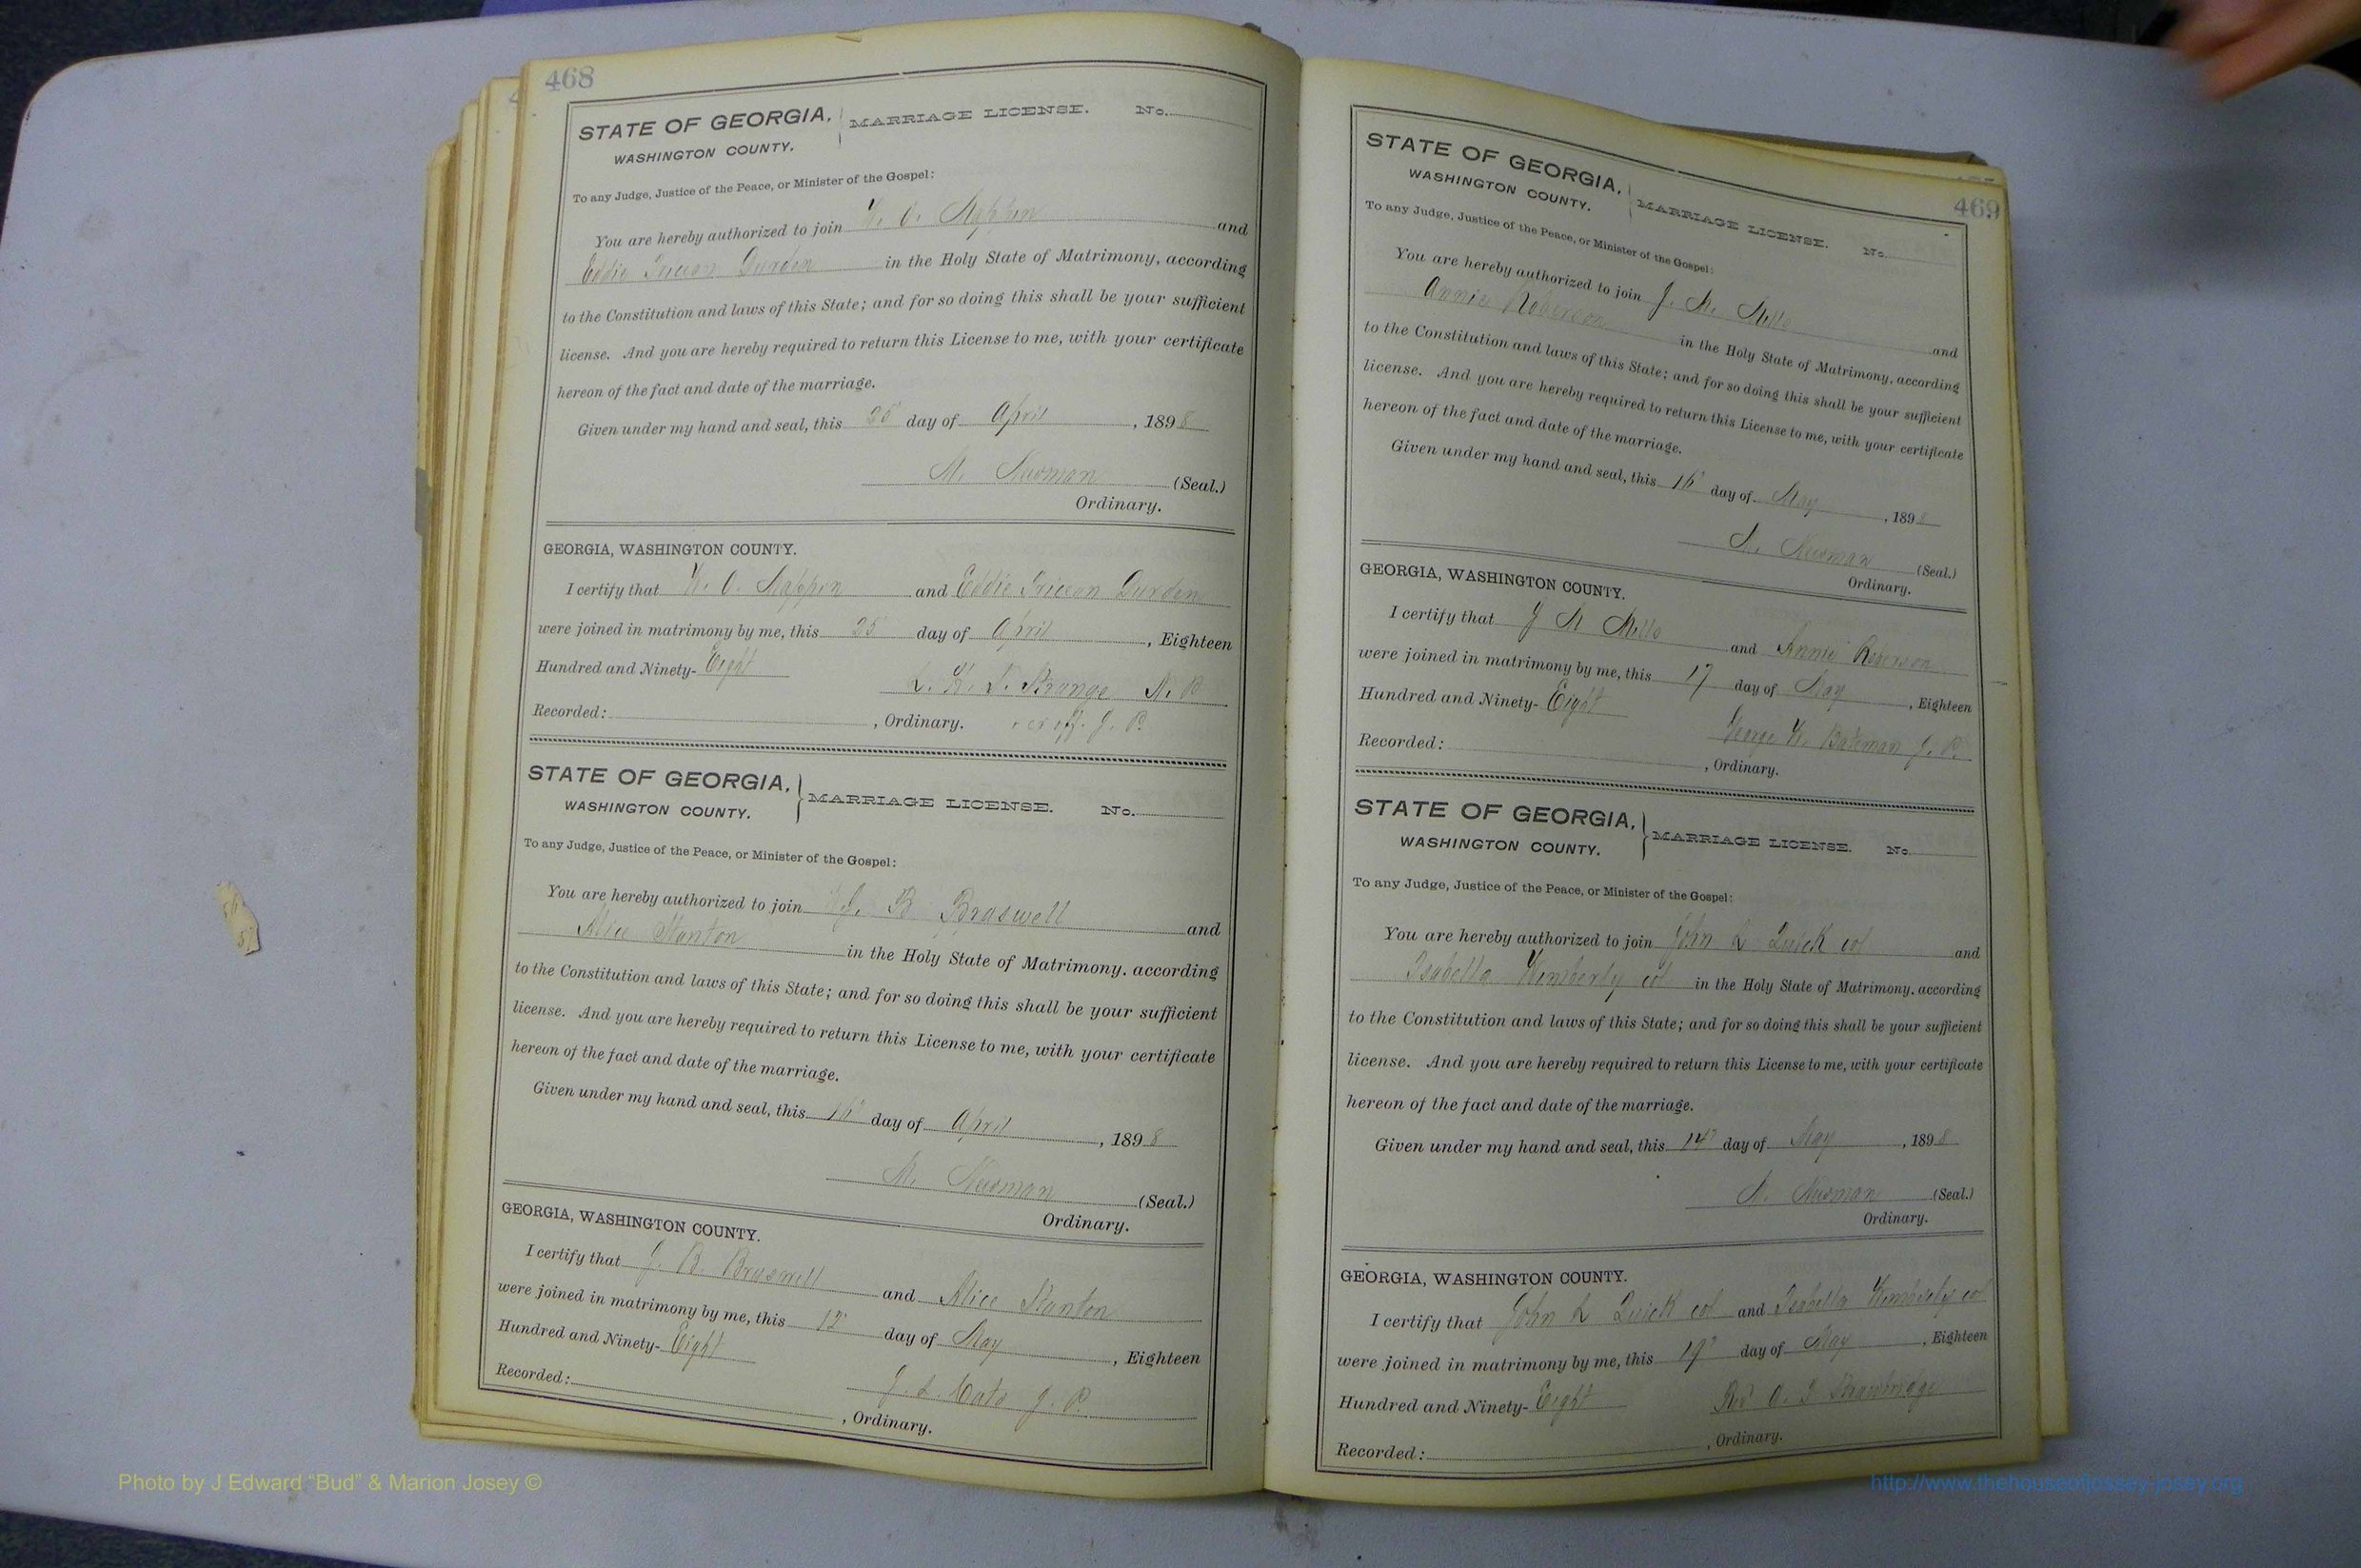 468
STATE OF GEORGIA, MARRIAGE LICENSE. No.
WASHINGTON COUNTY.
To any Judge, Justice of the Peace, or Minister of the Gospel:
You are hereby authorized to join W. O. Tappin and
Eddie Durden in the Holy State of Matrimony, according
to the Constitution and laws of this State; and for so doing this shall be your sufficient
license. And you are hereby required to return this License to me, with your certificate
hereon of the fact and date of the marriage.
Given under my hand and seal, this 25 day of April, 1898
M. Newman (Seal.)
Ordinary.
GEORGIA, WASHINGTON COUNTY.
I certify that W. O. Tappin and Eddie Durden
were joined in matrimony by me, this 25 day of April, Eighteen
Hundred and Ninety-Eight
Strange N. P.
Recorded: , Ordinary. ex off. J. P.
STATE OF GEORGIA, MARRIAGE LICENSE. No.
WASHINGTON COUNTY.
To any Judge, Justice of the Peace, or Minister of the Gospel:
You are hereby authorized to join J. B. Braswell and
Alice Stanton in the Holy State of Matrimony, according
to the Constitution and laws of this State; and for so doing this shall be your sufficient
license. And you are hereby required to return this License to me, with your certificate
hereon of the fact and date of the marriage.
Given under my hand and seal, this day of April, 1898
M. Newman (Seal.)
Ordinary.
GEORGIA, WASHINGTON COUNTY.
I certify that J. B. Braswell and Alice Stanton
were joined in matrimony by me, this 12 day of May, Eighteen
Hundred and Ninety-Eight
J. L. J. P.
Recorded: , Ordinary.
469
STATE OF GEORGIA, MARRIAGE LICENSE. No.
WASHINGTON COUNTY.
To any Judge, Justice of the Peace, or Minister of the Gospel:
You are hereby authorized to join J. M. Mills and
Annie Roberson in the Holy State of Matrimony, according
to the Constitution and laws of this State; and for so doing this shall be your sufficient
license. And you are hereby required to return this License to me, with your certificate
hereon of the fact and date of the marriage.
Given under my hand and seal, this 16 day of May, 1898
M. Newman (Seal.)
Ordinary.
GEORGIA, WASHINGTON COUNTY.
I certify that J M Mills and Annie Roberson
were joined in matrimony by me, this 17 day of May, Eighteen
Hundred and Ninety-Eight
George W. Bateman J. P.
Recorded: , Ordinary.
STATE OF GEORGIA, MARRIAGE LICENSE. No.
WASHINGTON COUNTY.
To any Judge, Justice of the Peace, or Minister of the Gospel:
You are hereby authorized to join John L Quick col and
Isabella Kimberly col in the Holy State of Matrimony, according
to the Constitution and laws of this State; and for so doing this shall be your sufficient
license. And you are hereby required to return this License to me, with your certificate
hereon of the fact and date of the marriage.
Given under my hand and seal, this 14 day of May, 1898
M. Newman (Seal.)
Ordinary.
GEORGIA, WASHINGTON COUNTY.
I certify that John L Quick col and Isabella Kimberly col
were joined in matrimony by me, this 19 day of May, Eighteen
Hundred and Ninety-Eight
Recorded: , Ordinary.
Photo by J Edward "Bud" & Marion Josey ©
http://www.thehouseofjossey-josey.org